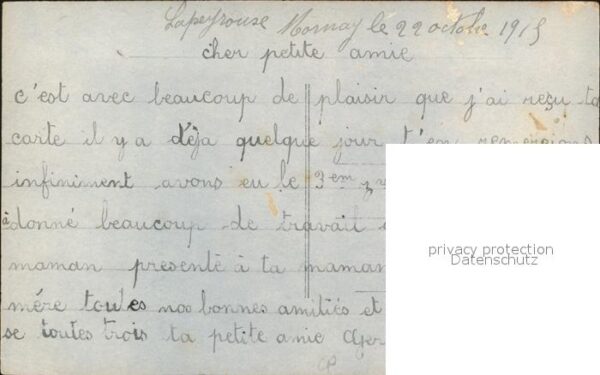 Lapeyrouse Mornay le 22 octobre 1915
cher petite amie
c'est avec beaucoup de plaisir que j'ai reçu ta
carte il y a déja quelque jour t'en remersions
infiniment avons eu le 3em
à donné beaucoup de travail
maman presente à ta maman
mére toutes nos bonnes amitiés et
se toutes trois ta petite amie Ger
privacy protection
Datenschutz